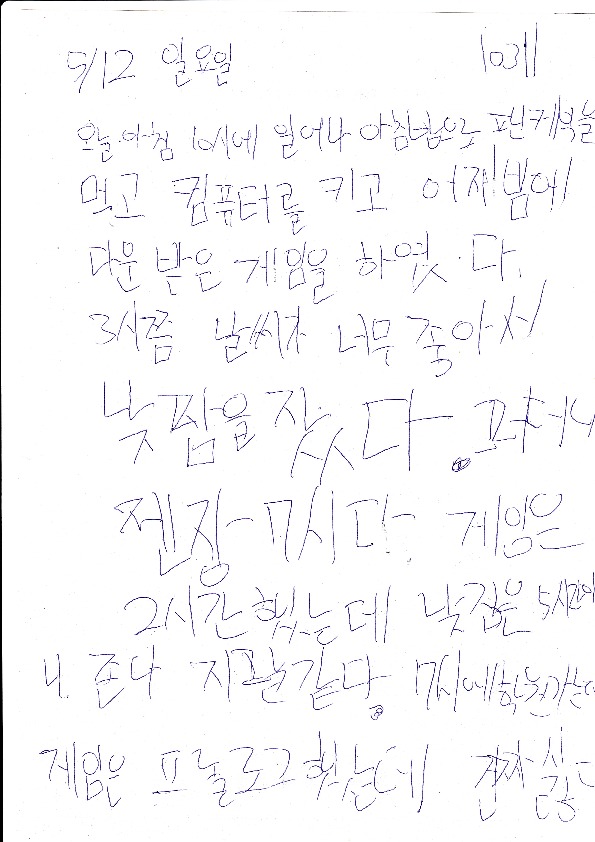 5/12 일요일 10게
오늘 아침 10시에 일어나 아침밥으로 팬케익을
먹고 컴퓨터를 키고 어재밤에
다운 받은 게임을 하였다.
3시쯤 날씨가 너무 좋아서
낮잠을 잤다.
젠장 7시다. 게임은
2시간 했는데 낮잠은 5시간이
니. 존나 지랄같다. 7시에 학원가는데
게임은 프롤로그 했는데 진짜